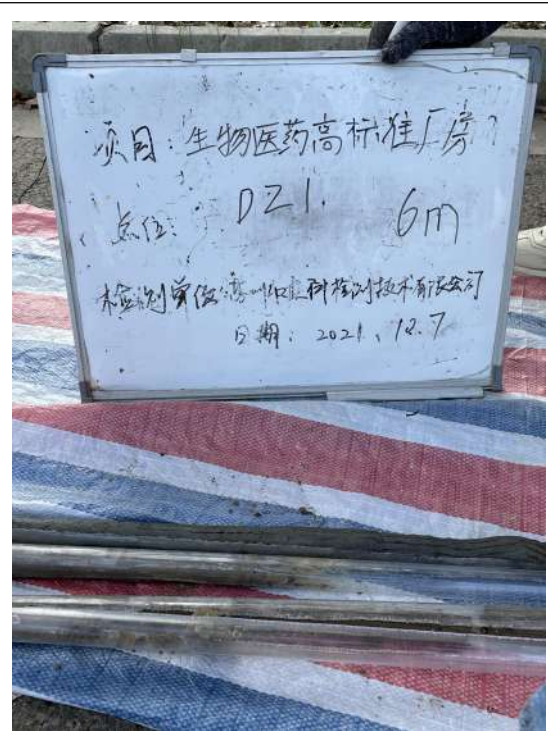 项目:生物医药高标准厂房
点位: DZ1. 6m
检测单位:苏州 检测技术有限公司
日期: 2021.12.7